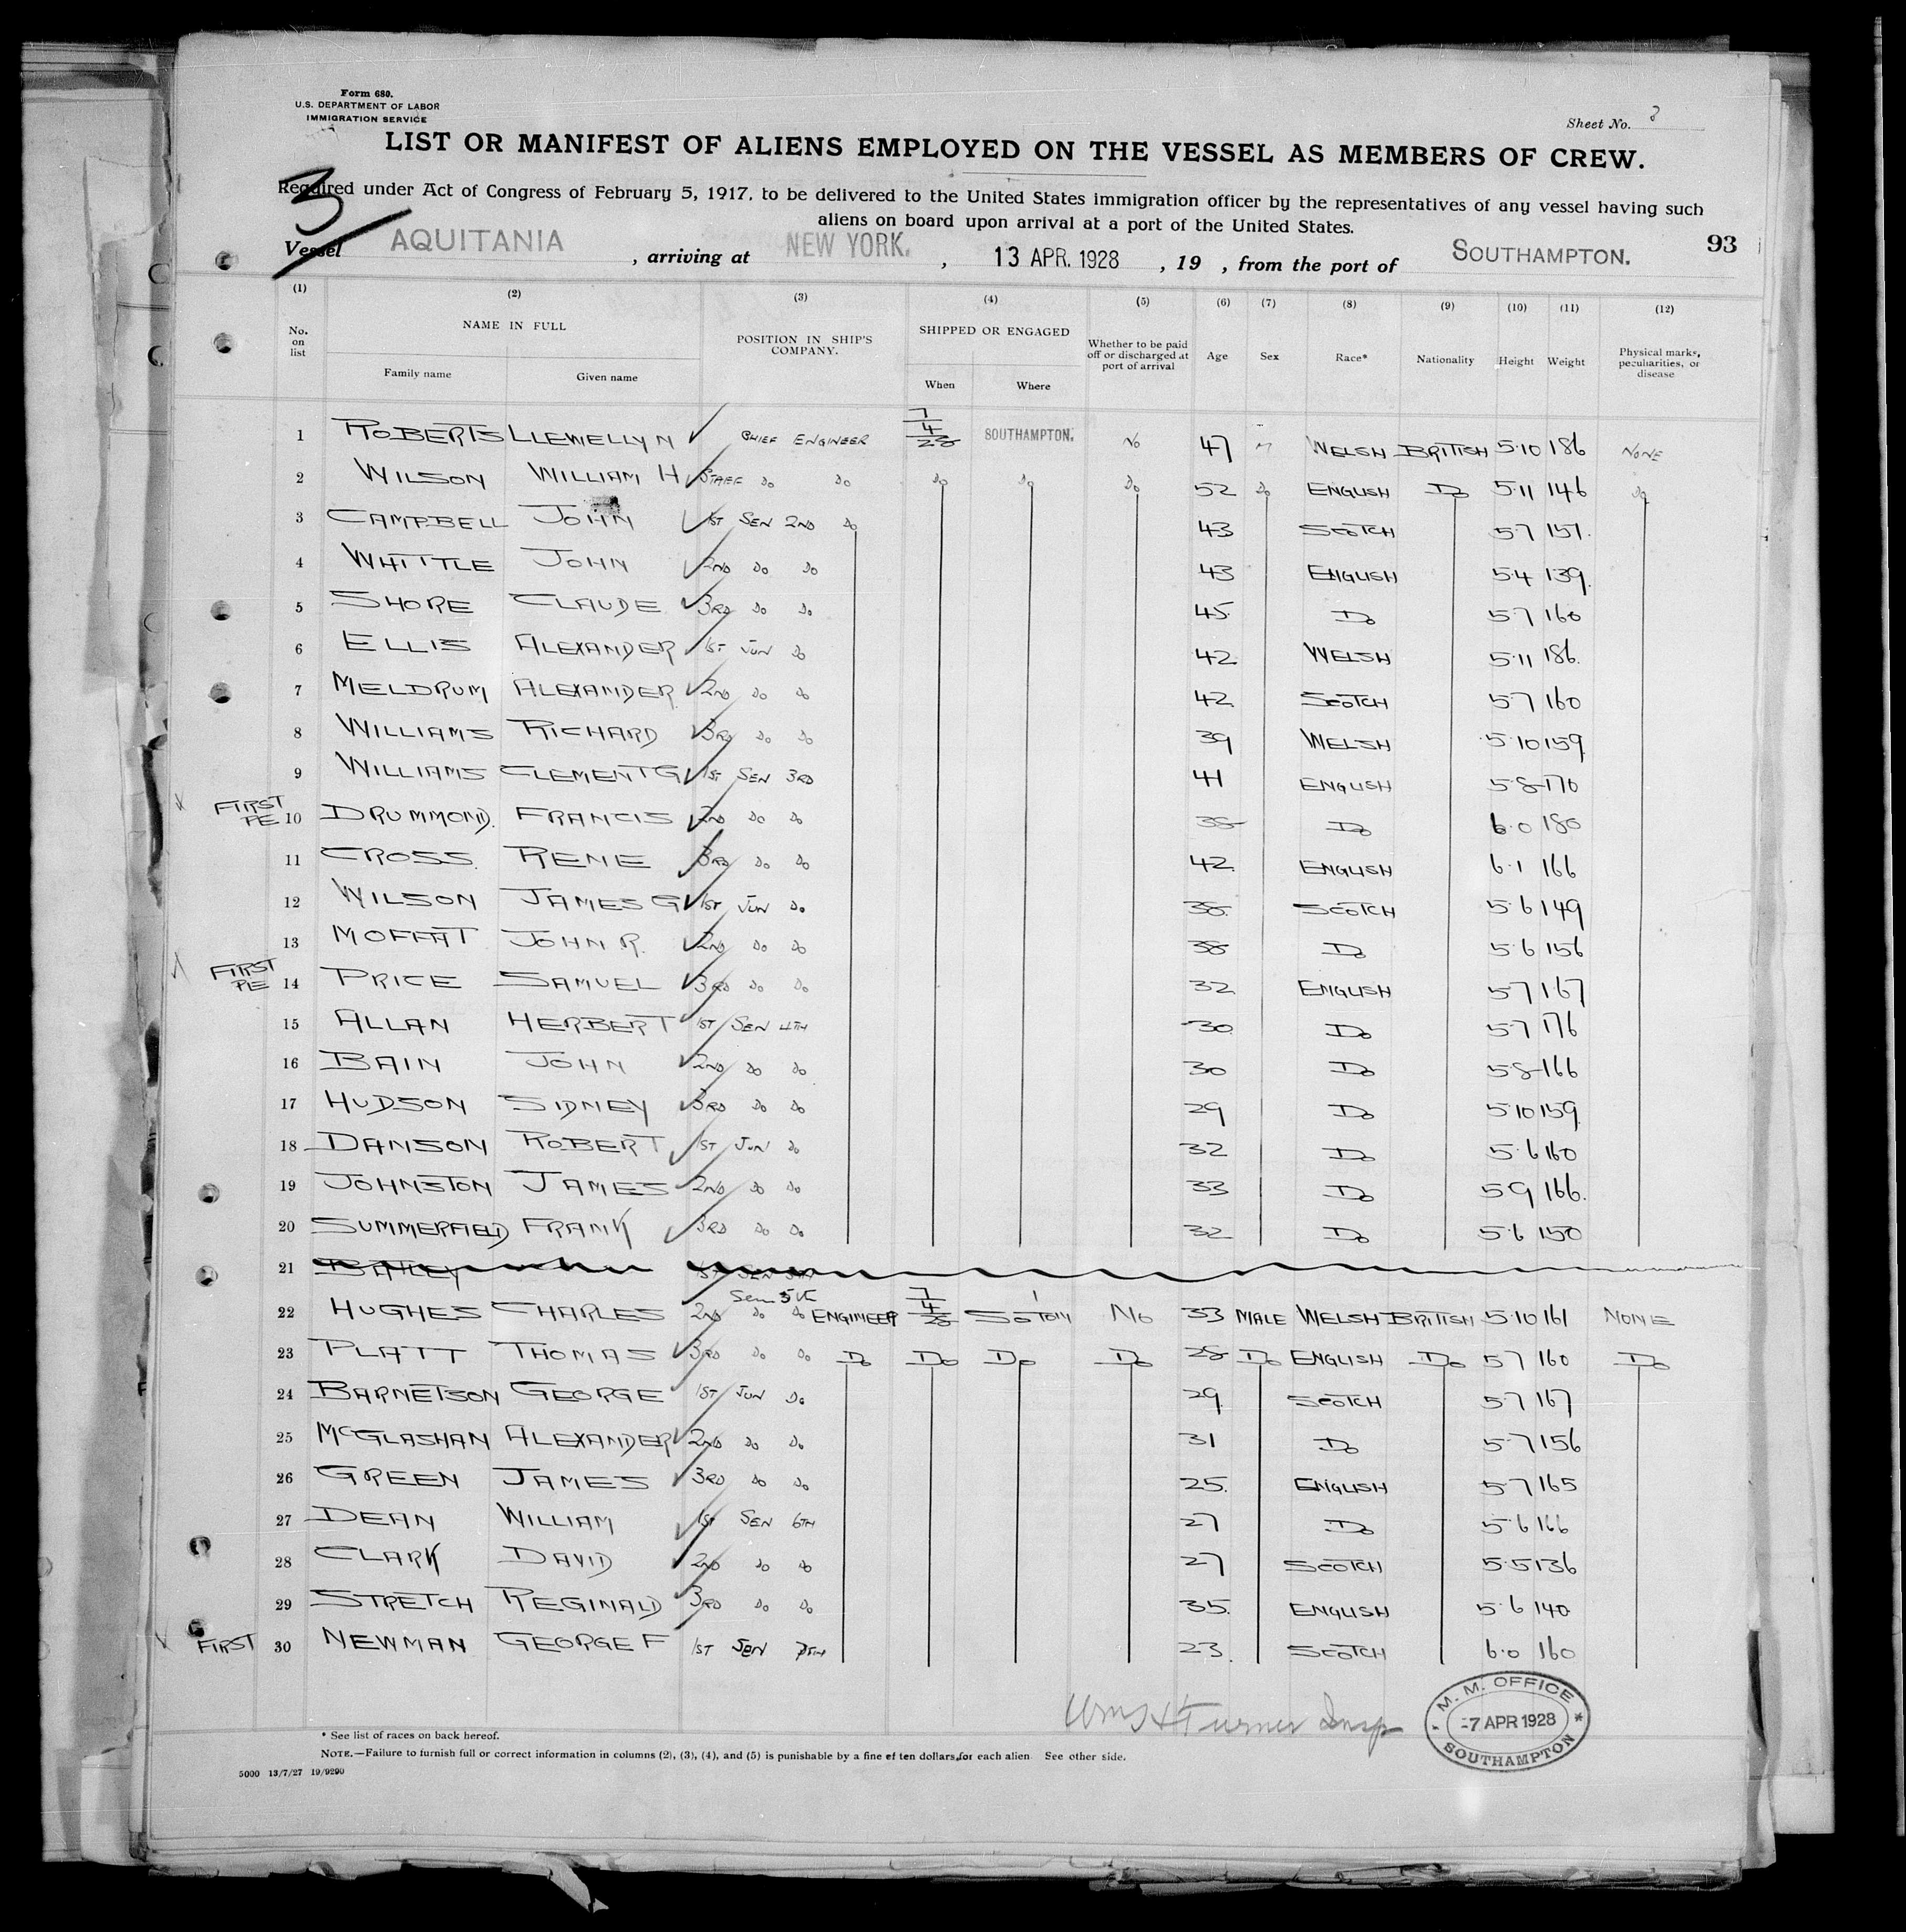 Form 680.
U.S. DEPARTMENT OF LABOR
IMMIGRATION SERVICE
Sheet No.
LIST OR MANIFEST OF ALIENS EMPLOYED ON THE VESSEL AS MEMBERS OF CREW.
3
Required under Act of Congress of February 5, 1917, to be delivered to the United States immigration officer by the representatives of any vessel having such
aliens on board upon arrival at a port of the United States.
Vessel AQUITANIA, arriving at NEW YORK., 13 APR. 1928, 19 , from the port of SOUTHAMPTON. 93
(1) (2) (3) (4) (5) (6) (7) (8) (9) (10) (11) (12)
No. on list NAME IN FULL Family name Given name POSITION IN SHIP'S COMPANY. SHIPPED OR ENGAGED When Where Whether to be paid off or discharged at port of arrival Age Sex Race* Nationality Height Weight Physical marks, peculiarities, or disease
1 ROBERTS LLEWELLYN CHIEF ENGINEER 7/4/28 SOUTHAMPTON. No 47 M WELSH BRITISH 5·10 186 NONE
2 WILSON WILLIAM H STAFF Do Do Do Do Do 52 Do ENGLISH Do 5·11 146 Do
3 CAMPBELL JOHN 1ST SEN 2ND Do 43 SCOTCH 5·7 151.
4 WHITTLE JOHN 2ND Do Do 43 ENGLISH 5·4 139.
5 SHORE CLAUDE 3RD Do Do 45 Do 5·7 160
6 ELLIS ALEXANDER 1ST JUN Do 42 WELSH 5·11 186.
7 MELDRUM ALEXANDER 2ND Do Do 42 SCOTCH 5·7 160
8 WILLIAMS RICHARD 3RD Do Do 39 WELSH 5·10 159
9 WILLIAMS CLEMENT G 1ST SEN 3RD 41 ENGLISH 5·8 170
FIRST 10 DRUMMOND. FRANCIS 2ND Do Do 38 Do 6·0 180
11 CROSS. RENE 3RD Do Do 42 ENGLISH 6·1 166
12 WILSON JAMES G 1ST JUN Do 38 SCOTCH 5·6 149
13 MOFFAT JOHN R. 2ND Do Do 38 Do 5·6 156
FIRST 14 PRICE SAMUEL 3RD Do Do 32 ENGLISH 5·7 167
15 ALLAN HERBERT 1ST SEN 4TH 30 Do 5·7 176
16 BAIN JOHN 2ND Do Do 30 Do 5·8 166
17 HUDSON SIDNEY 3RD Do Do 29 Do 5·10 159
18 DANSON ROBERT 1ST JUN Do 32 Do 5·6 160
19 JOHNSTON JAMES 2ND Do Do 33 Do 5·9 166.
20 SUMMERFIELD FRANK 3RD Do Do 32 Do 5·6 150
21 BAILEY 1ST SEN 5TH
Sen 5th
22 HUGHES CHARLES 2ND Do Do ENGINEER 7/4/28 SOTON No 33 MALE WELSH BRITISH 5·10 161 NONE
23 PLATT THOMAS 3RD Do Do Do Do Do Do 28 Do ENGLISH Do 5·7 160 Do
24 BARNETSON GEORGE 1ST JUN Do 29 SCOTCH 5·7 167
25 McGLASHAN ALEXANDER 2ND Do Do 31 Do 5·7 156
26 GREEN JAMES 3RD Do Do 25 ENGLISH 5·7 165
27 DEAN WILLIAM 1ST SEN 6TH 27 Do 5·6 166
28 CLARK DAVID 2ND Do Do 27 SCOTCH 5·5 136
29 STRETCH REGINALD 3RD Do Do 35 ENGLISH 5·6 140
FIRST 30 NEWMAN GEORGE F 1ST SEN 23 SCOTCH 6·0 160
Turner Insp
M. M. OFFICE
-7 APR 1928
SOUTHAMPTON
* See list of races on back hereof.
NOTE.—Failure to furnish full or correct information in columns (2), (3), (4), and (5) is punishable by a fine of ten dollars for each alien See other side.
5000 13/7/27 19/9290